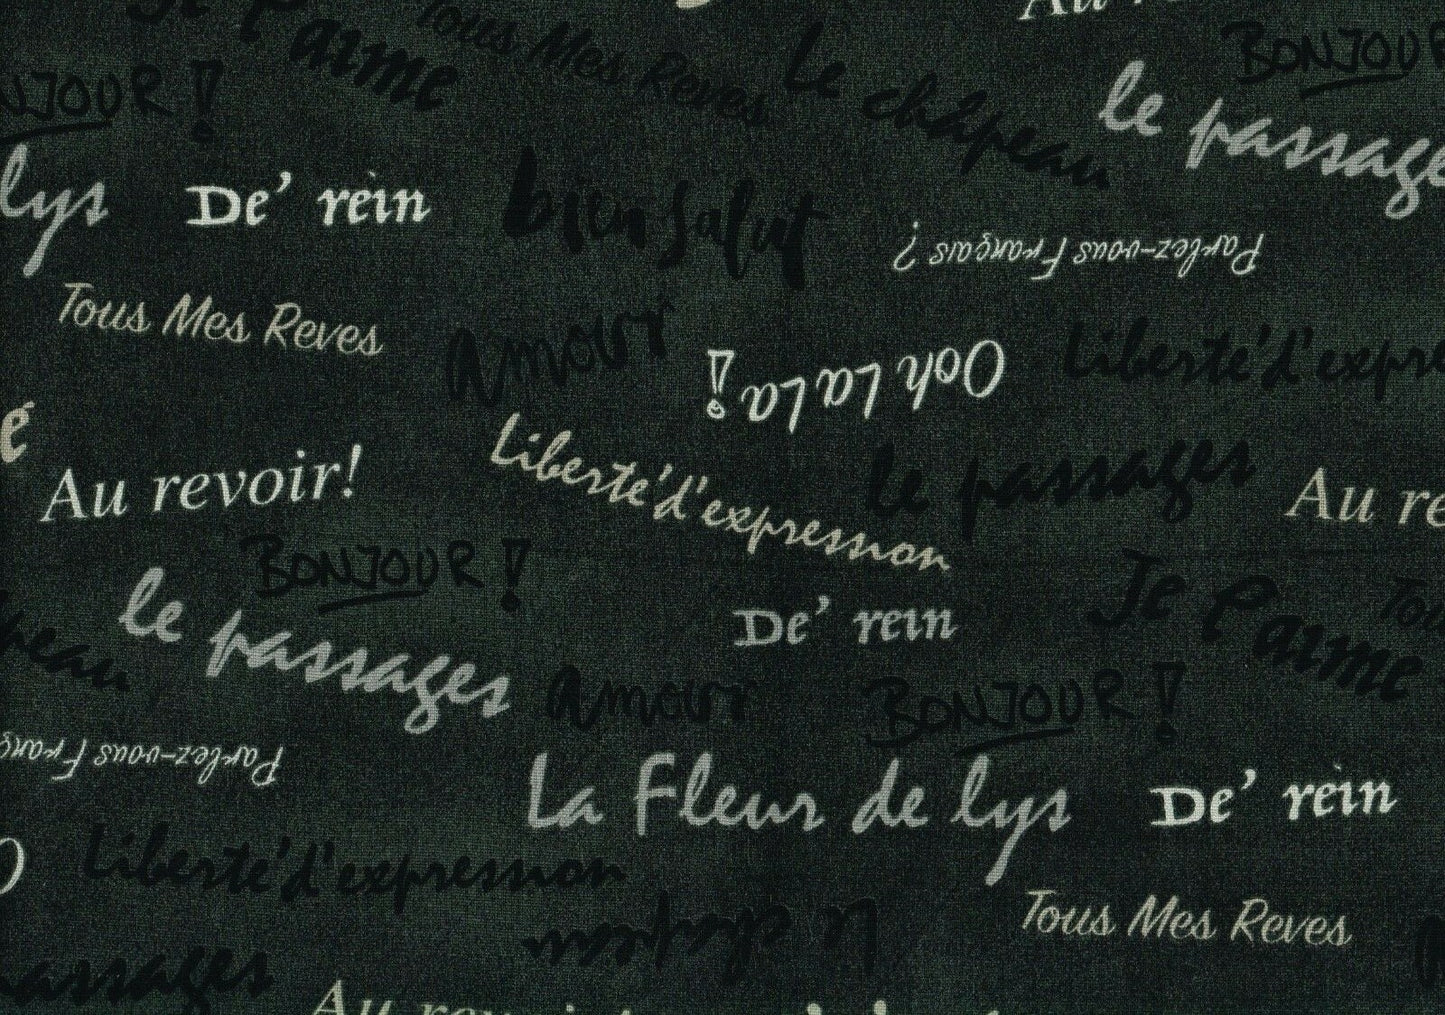 Je t'aime
Tous Mes Reves
Au r
BONJOUR
le chapeau
le passage
NJOUR!
lys
De' rein
bien salut
Parlez-vous Français ?
Tous Mes Reves
amour
Ooh La La!
Liberté d'expre
é
Au revoir!
Liberté d'expression
le passages
Au re
BONJOUR!
le passages
De' rein
Je t'aime
Tou
peau
amour
BONJOUR!
Parlez-vous Franç
La Fleur de lys
De' rein
O
Liberté d'expression
Tous Mes Reves
le chapeau
passages
Au revoir